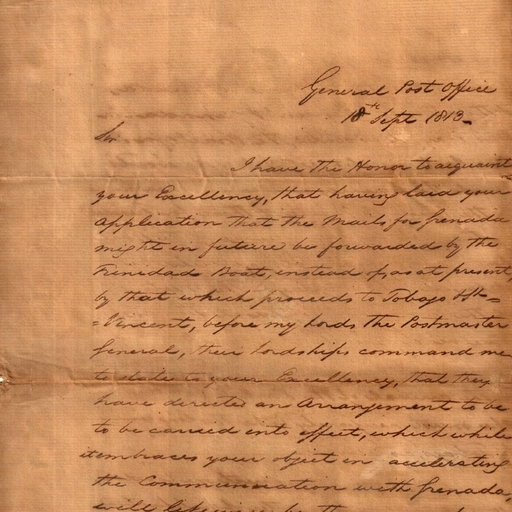 General Post Office
18th Sept 1813.
Sir
I have the Honor to acquaint
your Excellency, that having laid your
Application that the Mails for Grenada
might in future be forwarded by the
Trinidad Boat, instead of, as at present,
by that which proceeds to Tobago & St=
=Vincent, before my Lords the Postmaster
General, their Lordships command me
to state to your Excellency, that they
have directed an Arrangement to be
to be carried into effect, which while
it embraces your object in accelerating
the Communication with Grenada,
will